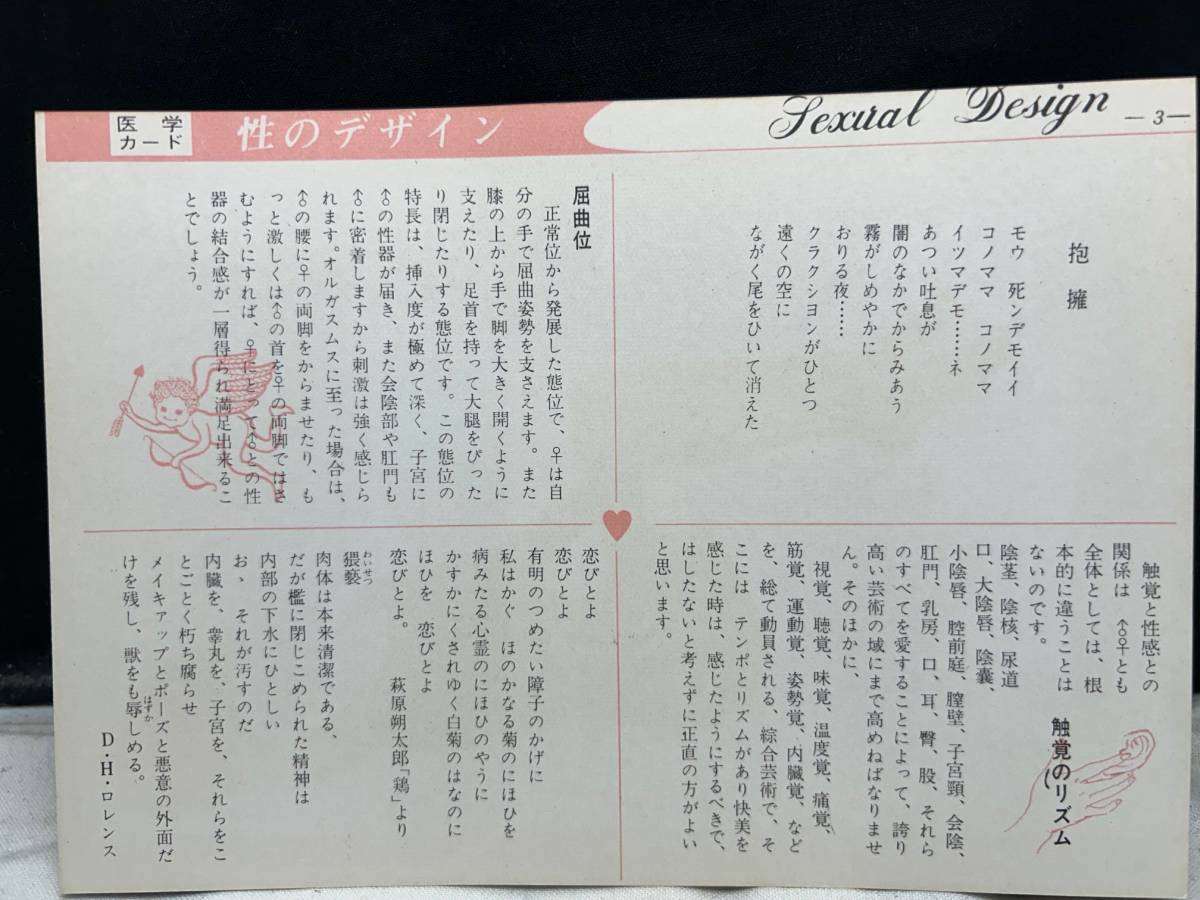 医学
カード
性のデザイン
Sexual Design
—3—
抱擁
モウ 死ンデモイイ
コノママ コノママ
イツマデモ……ネ
あつい吐息が
闇のなかでからみあう
霧がしめやかに
おりる夜……
クラクシヨンがひとつ
遠くの空に
ながく尾をひいて消えた
屈曲位
正常位から発展した態位で、♀は自
分の手で屈曲姿勢を支さえます。また
膝の上から手で脚を大きく開くように
支えたり、足首を持って大腿をぴった
り閉じたりする態位です。この態位の
特長は、挿入度が極めて深く、子宮に
♂の性器が届き、また会陰部や肛門も
♂に密着しますから刺激は強く感じら
れます。オルガスムスに至った場合は、
♂の腰に♀の両脚をからませたり、も
っと激しくは♂の首を♀の両脚ではさ
むようにすれば、♀にとって♂との性
器の結合感が一層得られ満足出来るこ
とでしょう。
触覚のリズム
触覚と性感との
関係は ♂♀とも
全体としては、根
本的に違うことは
ないのです。
陰茎、陰核、尿道
口、大陰唇、陰嚢、
小陰唇、腟前庭、膣壁、子宮頸、会陰、
肛門、乳房、口、耳、臀、股、それら
のすべてを愛することによって、誇り
高い芸術の域にまで高めねばなりませ
ん。そのほかに、
視覚、聴覚、味覚、温度覚、痛覚、
筋覚、運動覚、姿勢覚、内臓覚、など
を、総て動員される、綜合芸術で、そ
こには テンポとリズムがあり快美を
感じた時は、感じたようにするべきで、
はしたないと考えずに正直の方がよい
と思います。
恋びとよ
恋びとよ
有明のつめたい障子のかげに
私はかぐ ほのかなる菊のにほひを
病みたる心霊のにほひのやうに
かすかにくされゆく白菊のはなのに
ほひを 恋びとよ
恋びとよ。 萩原朔太郎「鶏」より
猥褻
わいせつ
肉体は本来清潔である、
だが檻に閉じこめられた精神は
内部の下水にひとしい
お、それが汚すのだ
内臓を、睾丸を、子宮を、それらをこ
とごとく朽ち腐らせ
メイキァップとポーズと悪意の外面だ
けを残し、獣をも辱しめる。
はずか
D・H・ロレンス